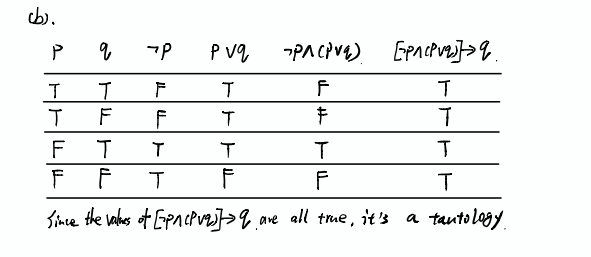 (b).
P q ¬P P∨q ¬P∧(P∨q) [¬P∧(P∨q)]→q.
T T F T F T
T F F T F T
F T T T T T
F F T F F T
Since the values of [¬P∧(P∨q)]→q are all true, it's a tautology.